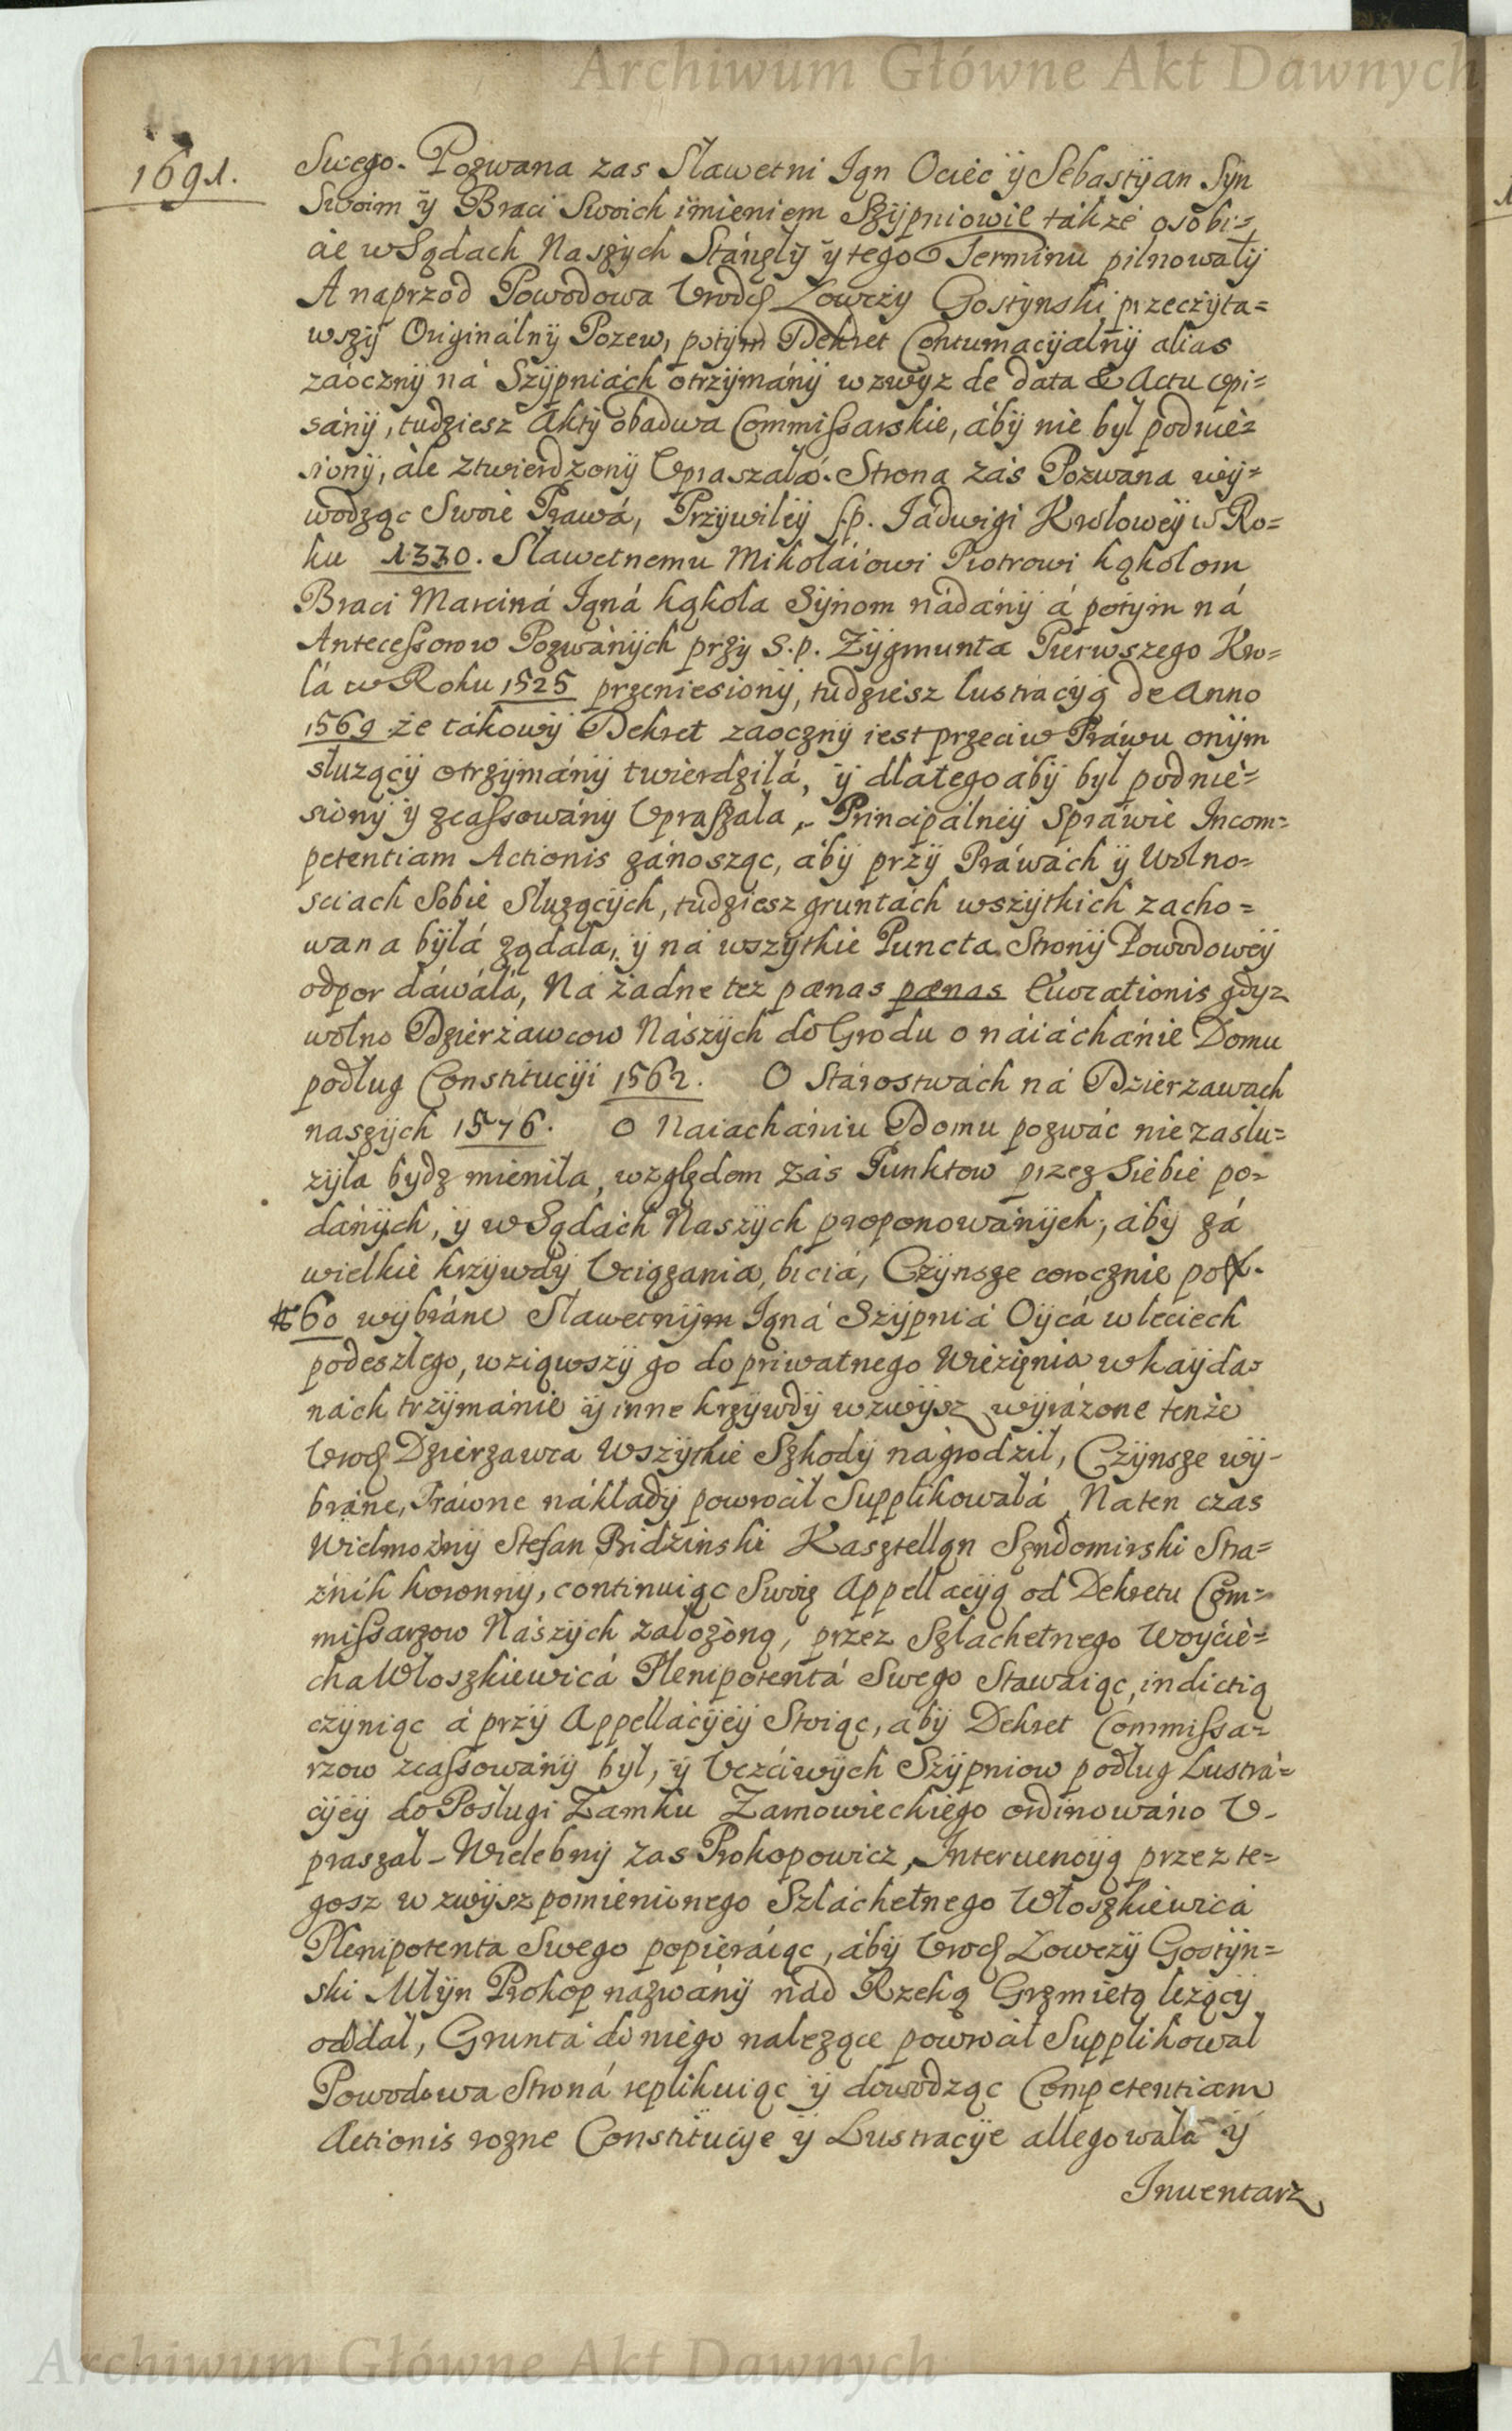 Archiwum Główne Akt Dawnych
1691.
Swego. Pozwana zas Sławetni Ian Ociec ÿ Sebastÿan Sÿn
Swoim ÿ Braci Swoich imieniem Szÿpniowie takze osobi=
cie w Sądach Naszÿch Stánęlÿ ÿ tego Terminu pilnowalÿ
A naprzod Powodowa Vrodz Łowczy Gostÿnski przeczÿta=
wszÿ Originálnÿ Pozew, potÿm Dekret Contumacÿalnÿ alias
záocznÿ ná Szÿpniách otrzÿmánÿ w zwÿz de data & Actu opi=
sánÿ, tudziesz Aktÿ obadwa Commißarskie, ábÿ nie bÿl podnie=
sionÿ, ále ztwierdzonÿ Vpraszalá. Strona zás Pozwana wÿ=
wodząc Swoie Prawá, Przÿwileÿ s.p. Iádwigi Kroloweÿ w Ro=
ku 1330. Slawetnemu Mikoláiowi Piotrowi kąkolom
Braci Marciná Iąná kąkola Sÿnom nádánÿ á potÿm ná
Anteceßorow Pozwánÿch przÿ s.p. Zÿgmunta Pierwszego Kro=
lá w Roku 1525 przeniesionÿ, tudziesz lustracÿą de Anno
1569 że tákowÿ Dekret zaocznÿ iest przeciw Práwu onÿm
sluzącÿ otrzÿmánÿ twierdzilá, ÿ dlatego ábÿ bÿl podnie=
sionÿ ÿ zcaßowánÿ Vpraszala, Principálneÿ Spráwie Incom=
petentiam Actionis zánosząc, ábÿ przÿ Práwách ÿ Wolno=
sciach Sobie Sluzącÿch, tudziesz gruntách wszÿtkich zacho=
wana bÿlá ządala, ÿ ná wszÿtkie Puncta Stronÿ Powodoweÿ
odpor dáwálá, Ná żadne tez pænas pænas Evocationis gdÿz
wolno Dzierżawcow Nászÿch do Grodu o náiáchánie Domu
podlug Constitucÿi 1562. O Stárostwách ná Dzierzawach
naszÿch 1576. O Naiachániu Domu pozwác nie zaslu=
zÿla bÿdz mienila, względem zás Punktow przez Siebie po=
dánÿch, ÿ w Sądách Naszÿch proponowánÿch, ábÿ zá
wielkie krzÿwdÿ Vciązania, biciá, Czÿnsze corocznie po
60 wÿbráne Slawetnÿm Iąná Szÿpniá Oÿcá w leciech
podeszlego, wziąwszÿ go do priwatnego Wiezięnia w kaÿda=
nách trzÿmánie ÿ inne krzÿwdÿ wzwÿsz wÿrázone tenże
Vrodz Dzierzawca Wszÿtkie Szkodÿ nágrodzil, Czÿnsze wÿ=
bráne, Práwne nákladÿ powrocil Supplikowalá Na ten czas
Wielmożnÿ Stefan Bidzinski Kasztellan Sęndomirski Stra=
żnik koronnÿ, continuiąc Swoię Appellacÿą od Dekretu Com=
mißarzow Nászÿch zalożoną, przez Szlachetnego Woÿcie=
cha Wloszkiewicá Plenipotentá Swego Stawaiąc, indictią
czÿniąc á przÿ Appellacÿeÿ Stoiąc, ábÿ Dekret Commißa=
rzow zcaßowánÿ bÿl, ÿ Vczciwÿch Szÿpniow podlug Lustrá=
cÿeÿ do Poslugi Zamku Zamowieckiego ordinowáno V=
praszal Wielebnÿ zas Prokopowicz, Interuencÿą przez te=
gosz w zwÿsz pomienionego Szláchetnego Wloszkiewicá
Plenipotenta Swego popieráiąc, ábÿ Vrodz Lowczÿ Gostÿn=
ski Mlÿn Prokop nazwánÿ nád Rzeką Grzmietą leżącÿ
oddal, Gruntá do niego nalezące powrocil Supplikowal
Powodowa Stroná replikuiąc ÿ dowodząc Competentiam
Actionis rozne Constitucÿe ÿ Lustracÿe allegowalá ÿ
Inuentarz
Archiwum Główne Akt Dawnych